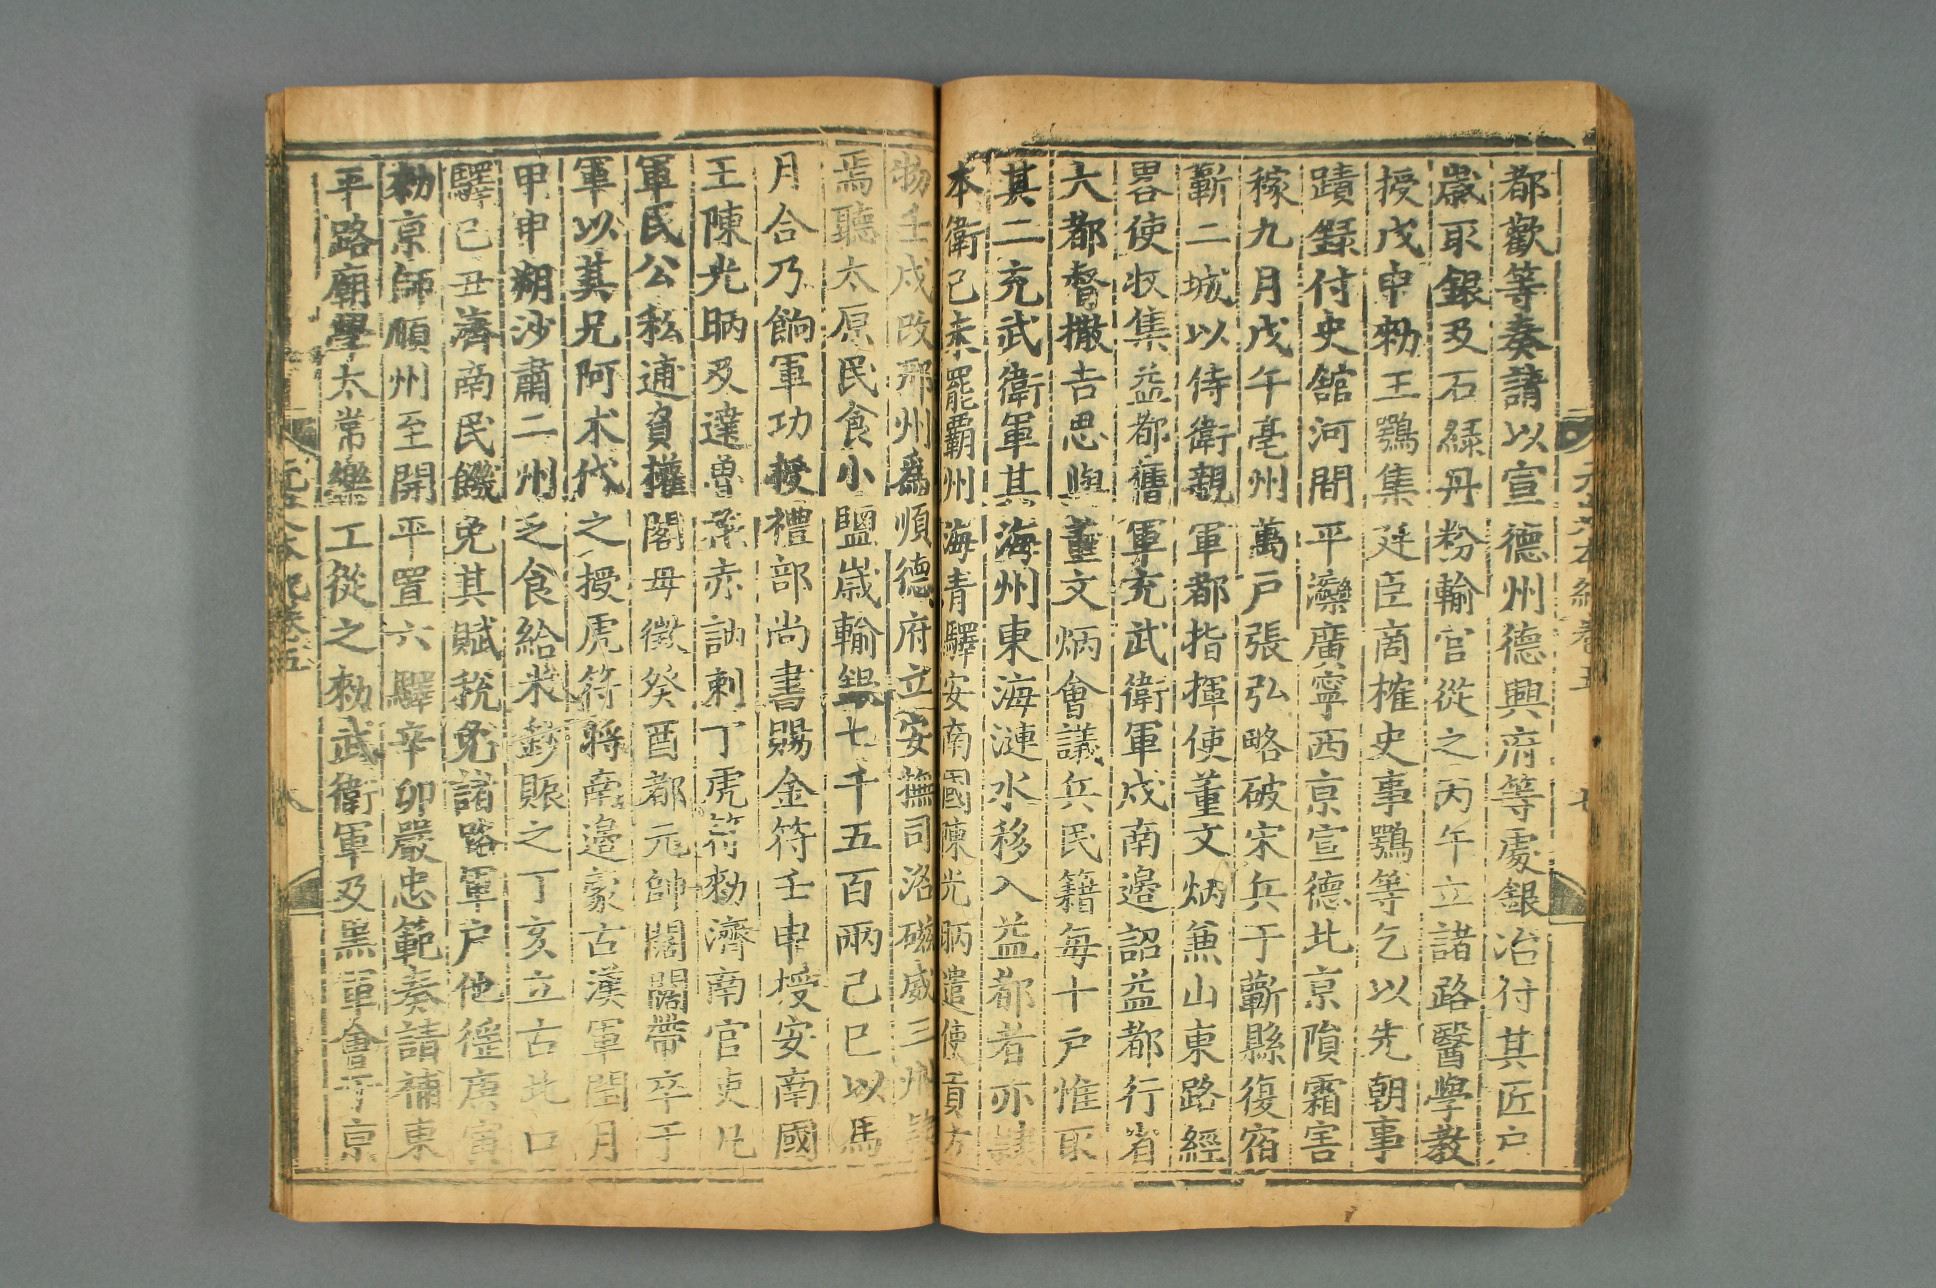 都歡等奏請以宣德州德興府等處銀冶付其匠戶
歲取銀及石綠丹粉輸官從之丙午立諸路醫學教
授戊申勑王鶚集廷臣商榷史事鶚等乞以先朝事
蹟錄付史舘河間平灤廣寧西京宣德北京隕霜害
稼九月戊午亳州萬戶張弘略破宋兵于蘄縣復宿
蘄二城以侍衛親軍都指揮使董文炳兼山東路經
畧使收集益都舊軍充武衛軍戍南邊詔益都行省
大都督撒吉思與董文炳會議兵民籍每十戶惟取
其二充武衛軍其海州東海漣水移入益都者亦隸
本衛己未罷霸州海青驛安南國陳光昞遣使貢方
物壬戌改邢州爲順德府立安撫司洺磁威三州隸
焉聽太原民食小鹽歲輸銀七千五百兩己巳以馬
月合乃餉軍功授禮部尚書賜金符壬申授安南國
王陳光昞及達魯花赤訥剌丁虎符勑濟南官吏凡
軍民公私逋負權閣毋徵癸酉都元帥闊闊帶卒于
軍以其兄阿朮代之授虎符將南邊蒙古漢軍閏月
甲申朔沙肅二州乏食給米鈔賑之丁亥立古北口
驛己丑濟南民饑免其賦稅免諸路軍戶他徭庚寅
勑京師順州至開平置六驛辛卯嚴忠範奏請補東
平路廟學太常樂工從之勑武衛軍及黑軍會于京
元史本紀卷五
八